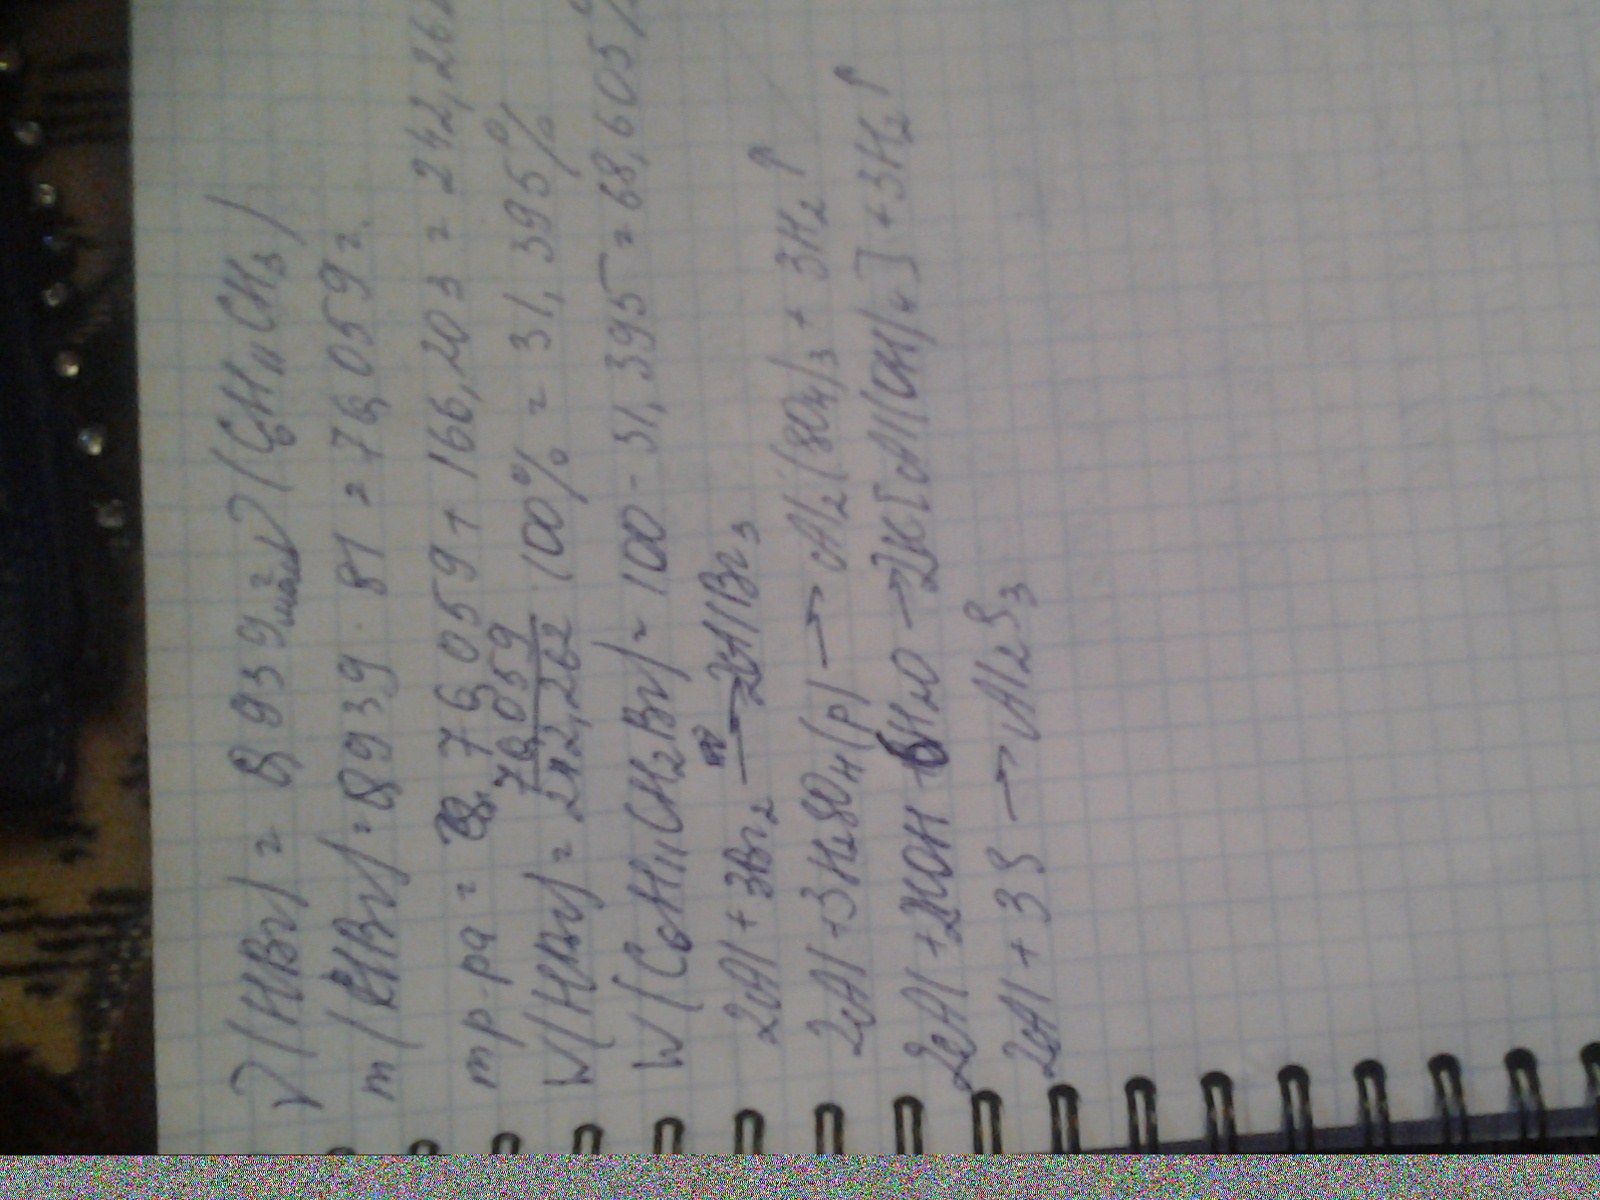 ν(HBr) = 0,939 моль ν(C₆H₁₁CH₃)
m(HBr) = 0,939 · 81 = 76,059 г.
m р-ра = 76,059 + 166,203 = 242,262
W(HBr) = 76,059/242,262 · 100% = 31,395%
W(C₆H₁₁CH₂Br) = 100 - 31,395 = 68,605%
2Al + 3Br₂ →(t°) 2AlBr₃
2Al + 3H₂SO₄(р) → Al₂(SO₄)₃ + 3H₂↑
2Al + 2KOH + 6H₂O → 2K[Al(OH)₄] + 3H₂↑
2Al + 3S → Al₂S₃